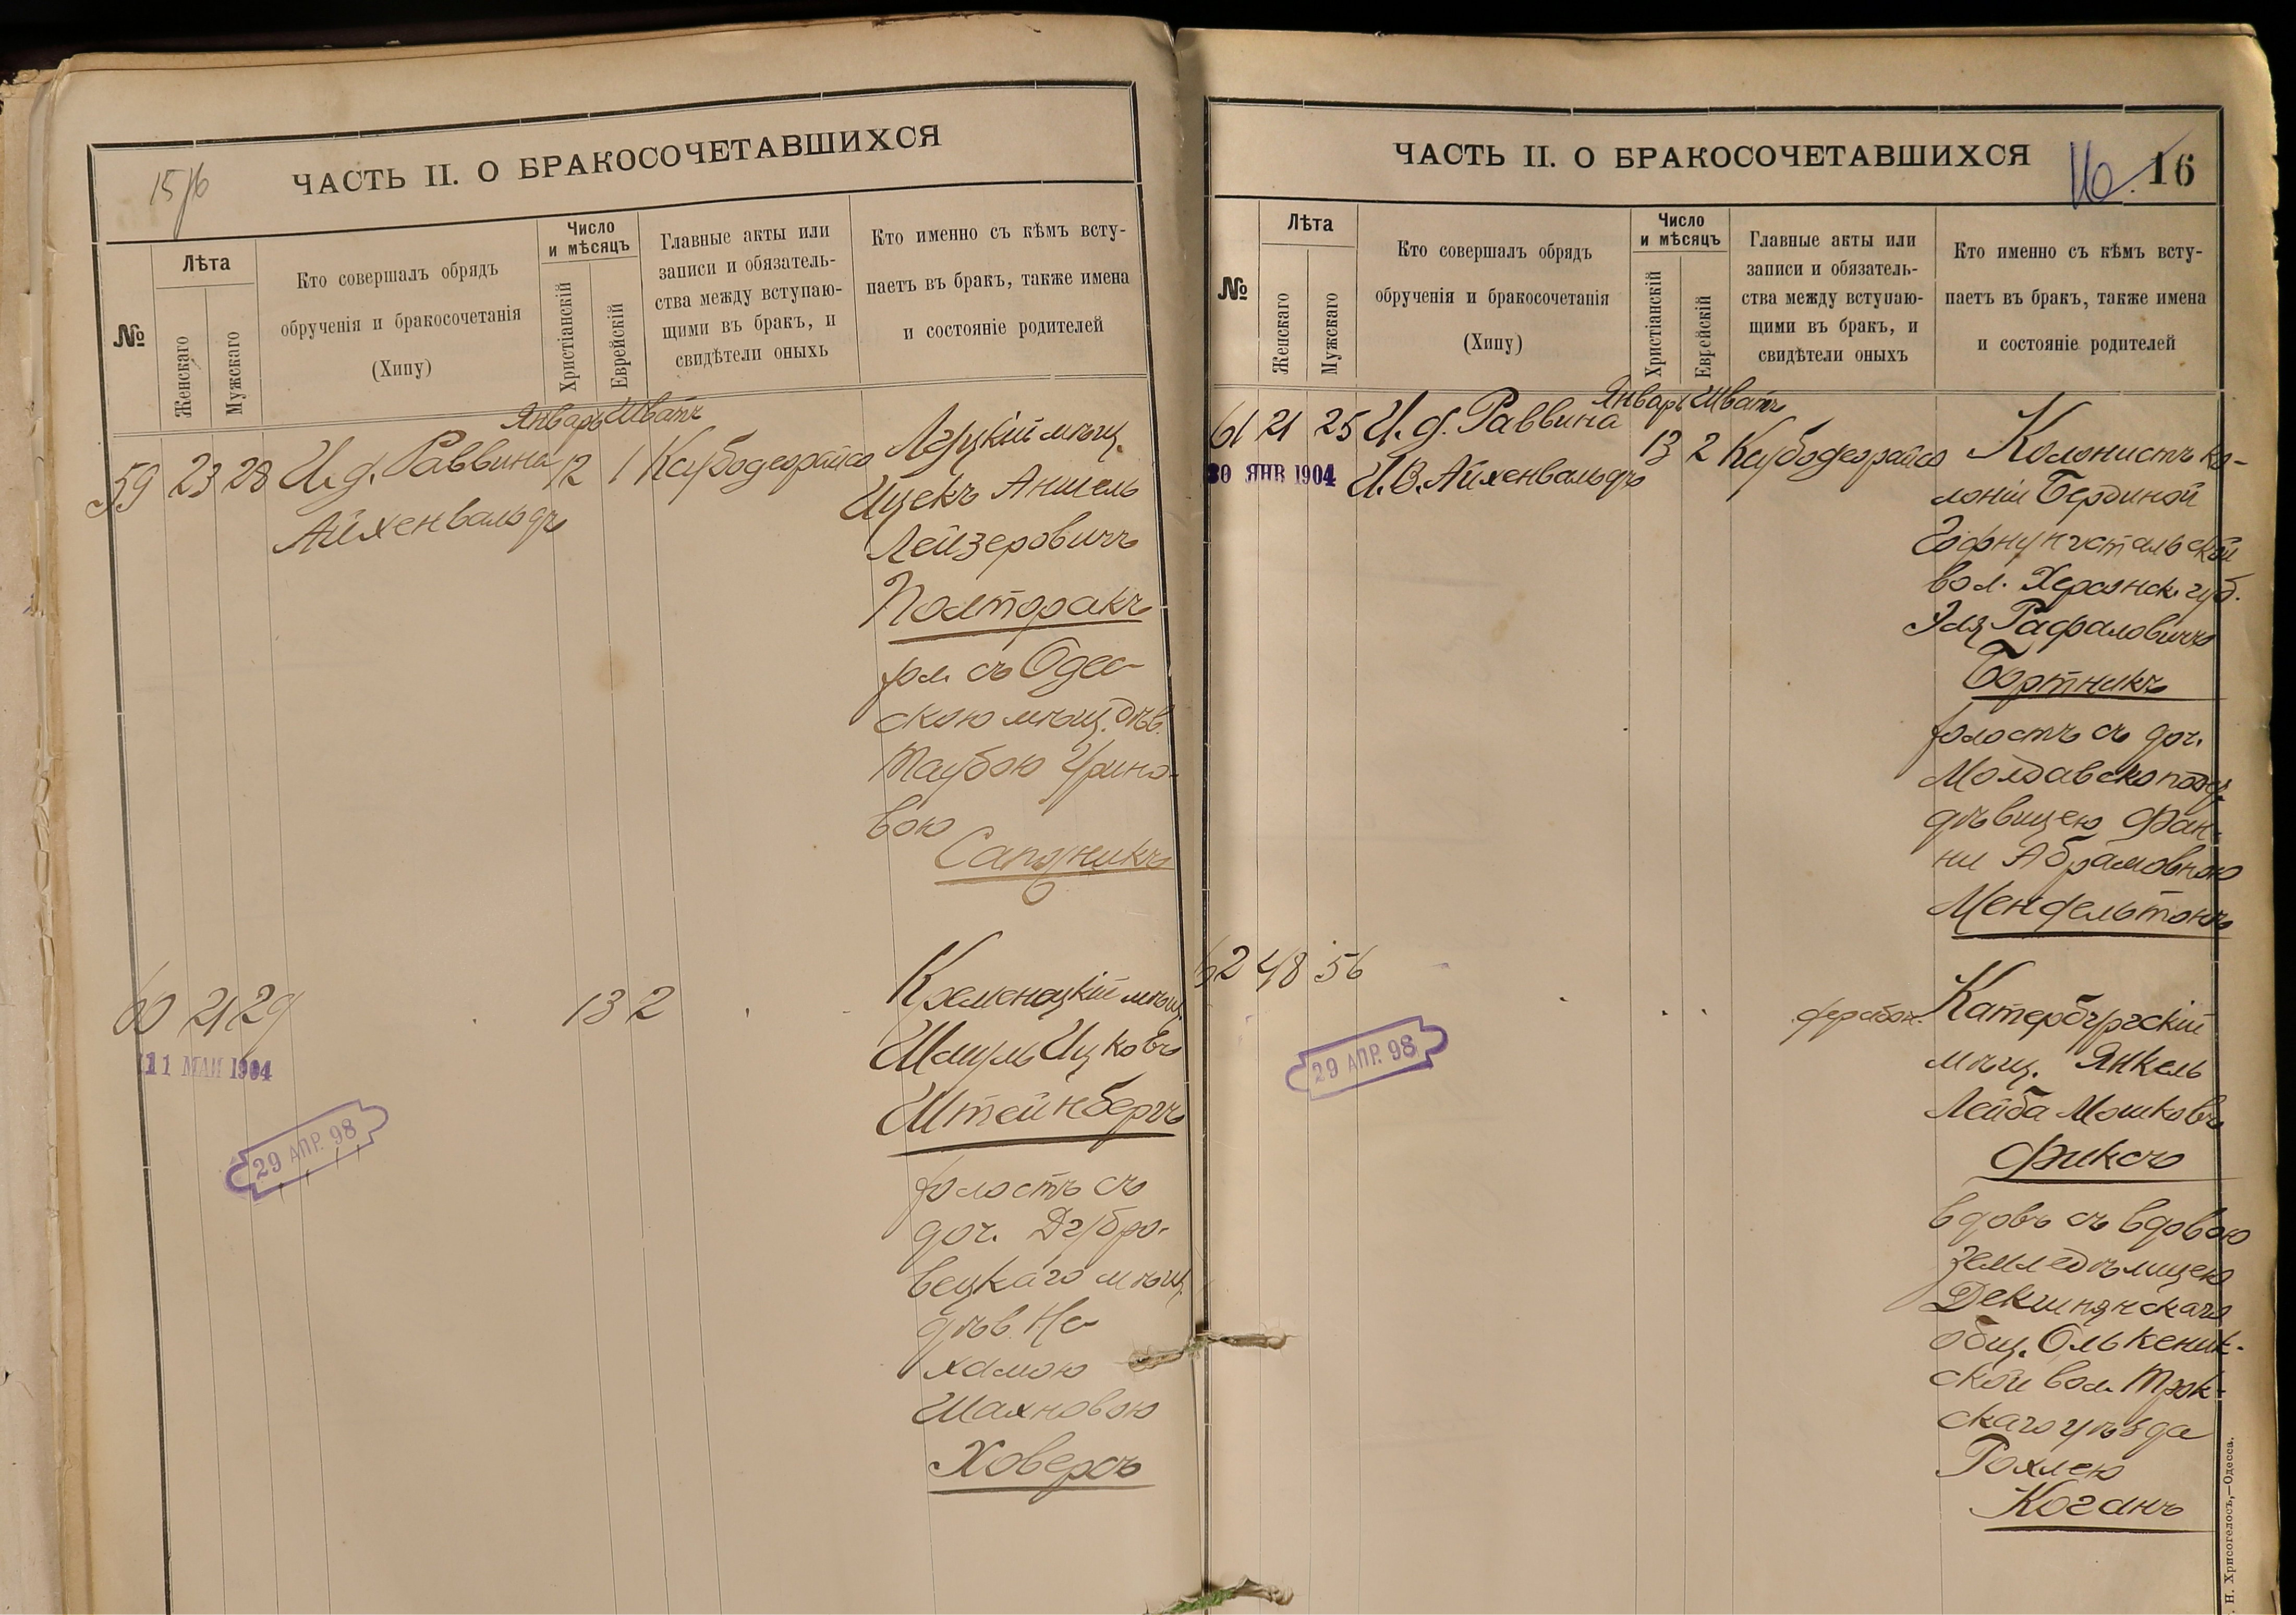 15/16
ЧАСТЬ II. О БРАКОСОЧЕТАВШИХСЯ
№
Лѣта
Женскаго
Мужскаго
Кто совершалъ обрядъ
обрученія и бракосочетанія
(Хипу)
Число
и мѣсяцъ
Христіанскій
Еврейскій
Главные акты или
записи и обязатель-
ства между вступаю-
щими въ бракъ, и
свидѣтели оныхъ
Кто именно съ кѣмъ всту-
паетъ въ бракъ, также имена
и состояніе родителей
Январь Шватъ
59 23 28 И. д. Раввина 12 1 Луцкій мѣщ.
Айхенвальдъ
Ицекъ Аншель
Лейзеровичъ
Полторакъ
хол. съ Одес-
скою мѣщ. дѣв.
Таубою Урино-
вою
Сапожникъ
60 21 29 13 2 Кременецкій мѣщ.
11 МАЙ 1904
29 АПР. 98
Шмуль Ицковъ
Штейнбергъ
холостъ съ
доч. Дубро-
вецкаго мѣщ.
дѣв. Не-
хамою
Шахновою
Ховерсъ
ЧАСТЬ II. О БРАКОСОЧЕТАВШИХСЯ
16. 16
№
Лѣта
Женскаго
Мужскаго
Кто совершалъ обрядъ
обрученія и бракосочетанія
(Хипу)
Число
и мѣсяцъ
Христіанскій
Еврейскій
Главные акты или
записи и обязатель-
ства между вступаю-
щими въ бракъ, и
свидѣтели оныхъ
Кто именно съ кѣмъ всту-
паетъ въ бракъ, также имена
и состояніе родителей
Январь Шватъ
61 21 25 И. д. Раввина 13 2 Колонистъ ко-
30 ЯНВ 1904
И. В. Айхенвальдъ
лоніи
вол. Херсонск. губ.
Эля Рафаловичъ
Бортникъ
холостъ съ доч.
Молдавскоподд.
дѣвицею Фан-
ни Абрамовною
Мендельтонъ
62 48 56 Катербургскій
29 АПР. 98
мѣщ. Янкель
Лейба Мошковъ
Фиксъ
вдовъ съ вдовою
земледѣлицею
Декшнянскаго
общ. Олькеник-
ской вол. Трок-
скаго уѣзда
Рохлею
Коганъ
Н. Хрисогелосъ,—Одесса.